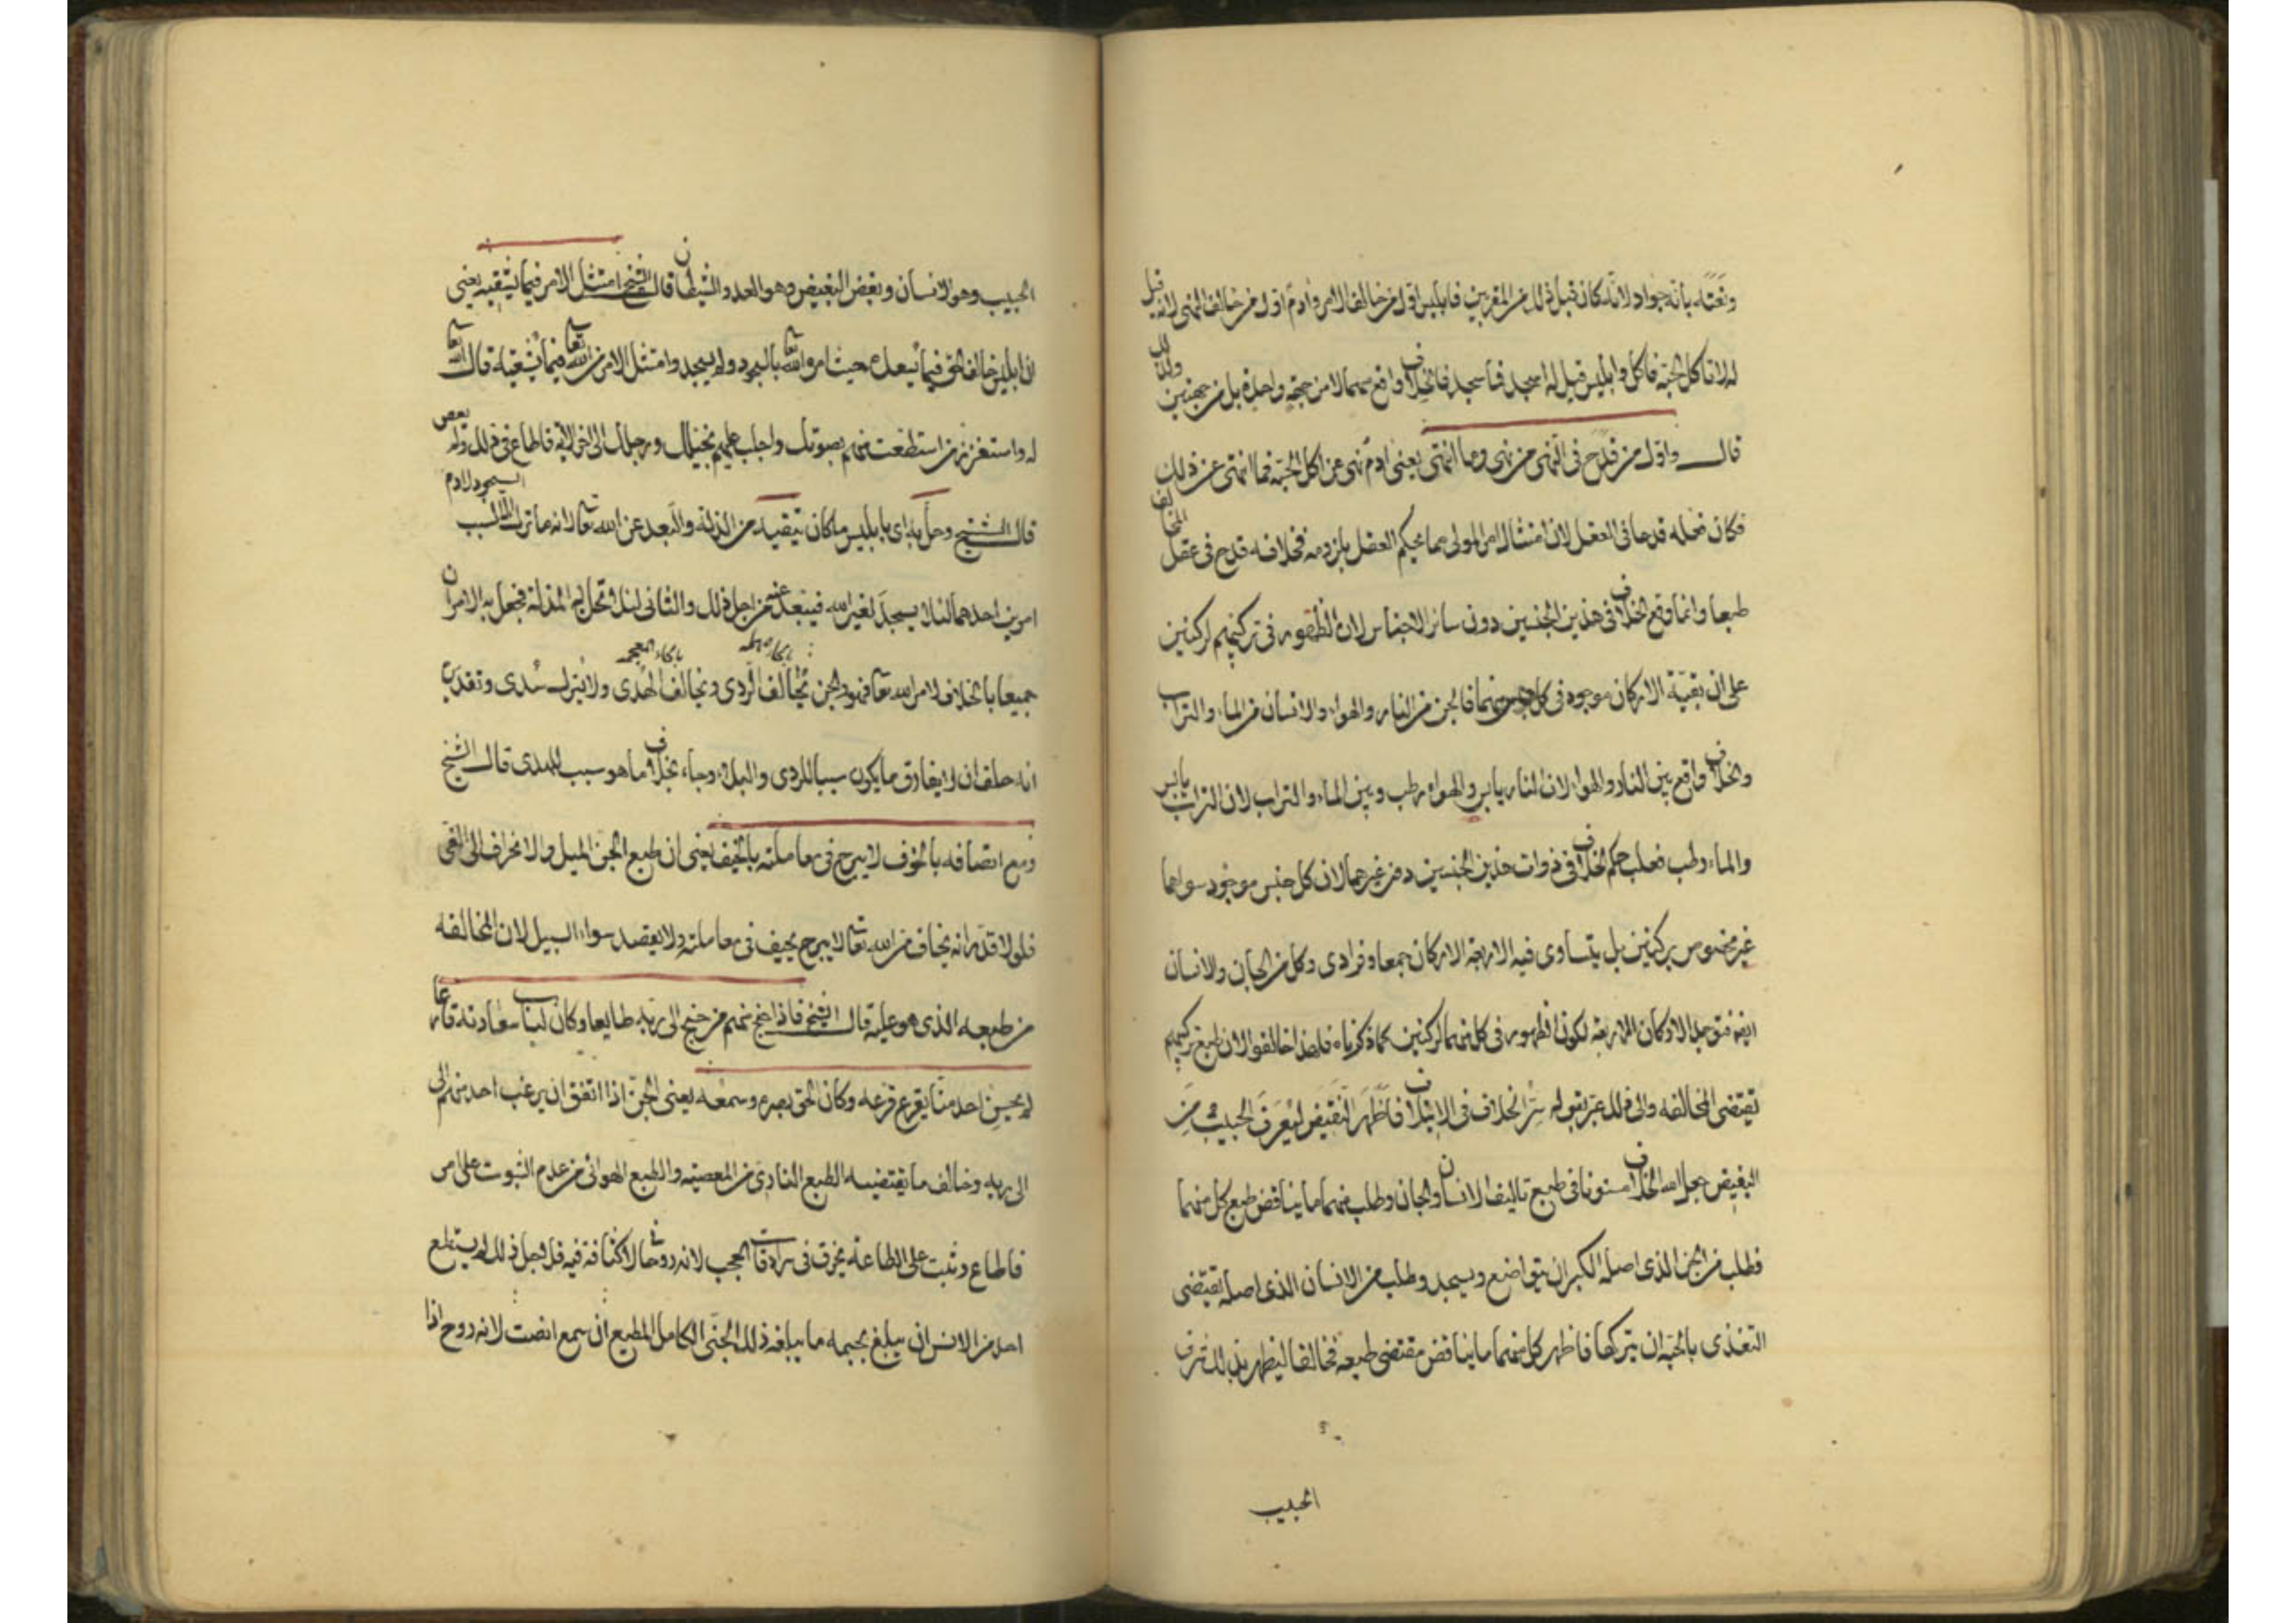 ونعته بأنه جواد لانه كان قبل ذلك من المقربين فابليس اول من خالف الامر وادم اول من خالف النهى لانه قيل
له لا تاكل الحبة فاكل وابليس قيل له اسجد فما سجد فالخلاف واقع منهما لا من جهة واحدة بل من جهتين
قال واول من قدح فى النهى من نهى وما انتهى يعنى ادم نهى عن اكل الحبة فما انتهى عن ذلك
فكان فعله قدحا فى العقل لان امتثال امر المولى مما يحكم العقل بلزومه فخلافه قدح فى عقل المخالف
طبعا وانما وقع الخلاف فى هذين الجنسين دون سائر الاجناس لان الظهور فى تركيبهم لركنين
على ان بقية الاركان موجودة فى كل منهما فالجن من النار والهواء والانسان من الماء والتراب
والخلاف واقع بين النار والهواء لان النار يابس والهواء رطب وبين الماء والتراب لان التراب يابس
والماء رطب فغلب حكم الخلاف فى ذوات هذين الجنسين دون غيرهما لان كل جنس موجود سواهما
غير مخصوص بركنين بل يتساوى فيه الاربعة الاركان جمعا وفرادى وكل من الجان والانسان
ايضا فتوجد الاركان الاربعة لكون الظهور فى كل منهما لركنين كما ذكرناه فلهذا خالفوا لان طبع تركيبهم
تقتضى المخالفه والى ذلك عبر بقوله سر الخلاف فى الايتلاف فاظهر النقيض ليعرف الحبيب من
البغيض جعل الله الخلاف مسنونا فى طبع تاليف الانسان والجان وطلب منهما ما يناقض طبع كل منهما
فطلب من الجن الذى اصله الكبر ان يتواضع ويسجد وطلب من الانسان الذى اصله يقتضى
التغذى بالحبة ان يتركها فاظهر كل منهما ما يناقض مقتضى طبعه فخالفا ليظهر بذلك شرف
الحبيب
الحبيب وهو الانسان وبغض البغيض وهو العدو الشيطان قال الشيخ امتثل الامر فيما يشقيه يعنى
ان ابليس خالف الحق فيما يسعده حيث امره الله تعا بالسجود ولم يسجد وامتثل الامر من الله تعا فيما يشقيه قال الله تعا
له واستفزز من استطعت منهم بصوتك واجلب عليهم بخيلك ورجلك الى اخر الاية فاطاع فى ذلك
قال الشيخ وحل به اى بابليس ما كان يتقيه من الذلة والبعد عن الله تعا لانه ما ترك السجود لادم
امرين احدهما لئلا يسجد لغير الله فيبعد عنه من اجل ذلك والثانى لئلا تحل به المذلة فحل به الامران
بالحاء مهمله بالخاء المعجمه
جميعا بالخلاف لامر الله تعا فهو والجن يحالف الردى ويخالف الهدى ولا يترك سدى وتقديره
انه حلف ان لا يفارق ما يكون سببا للردى والبلاء وجاء بخلاف ما هو سبب للهدى قال الشيخ
ومع اتصافه بالخوف لا يبرح فى معاملته بالحيف يعنى ان طبع الجن الميل والانحراف الى الغى
فلو لا قدر انه يخاف من الله تعا لا يبرح يحيف فى معاملته ولا يقصد سواء السبيل لان المخالفه
من طبعه الذى هو عليه قال الشيخ فاذا جنح منهم من جنح الى ربه طايعا وكان لباب سعادته قارعا
لم يحسن احد منا يقرع قرعه وكان الحق بصره وسمعه يعنى الجن اذا اتفق ان يرغب احد منهم الى
الى ربه وخالف ما يقتضيه الطبع النارى من المعصيه والطبع الهوائى من عدم الثبوت على امر
فاطاع وثبت على الطاعة يخرق فى سرادقات الحجب لانه روحا لا كثافة فيه فلاجل ذلك لم يستطع
احد من الانس ان يبلغ بجسمه ما يبلغه ذلك الجنى الكامل المطيع ان سمع انصت لانه روح اذا